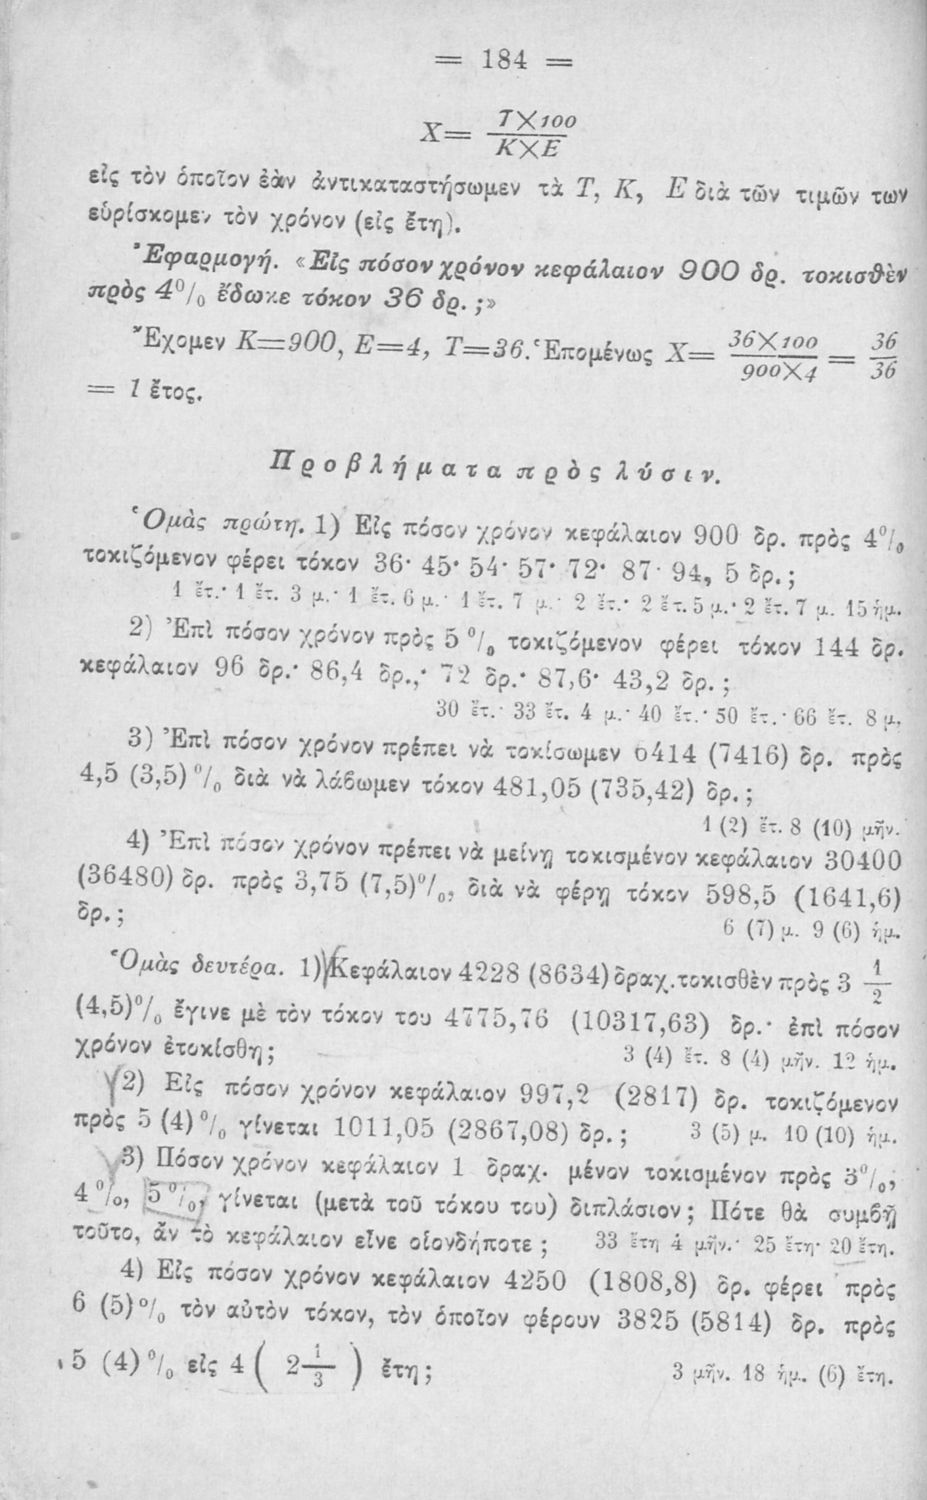 = 184 =
X= T×100 / K×E
εἰς τὸν ὁποῖον ἐὰν ἀντικαταστήσωμεν τὰ Τ, Κ, Ε διὰ τῶν τιμῶν των
εὑρίσκομεν τὸν χρόνον (εἰς ἔτη).
Ἐφαρμογή. «Εἰς πόσον χρόνον κεφάλαιον 900 δρ. τοκισθὲν
πρὸς 4% ἔδωκε τόκον 36 δρ. ;»
Ἔχομεν Κ=900, Ε=4, Τ=36. Ἑπομένως Χ= 36×100 / 900×4 = 36 / 36
= 1 ἔτος.
Προβλήματα πρὸς λύσιν.
Ὁμὰς πρώτη. 1) Εἰς πόσον χρόνον κεφάλαιον 900 δρ. πρὸς 4%
τοκιζόμενον φέρει τόκον 36· 45· 54· 57· 72· 87· 94, 5 δρ.;
1 ἔτ.· 1 ἔτ. 3 μ.· 1 ἔτ. 6 μ.· 1 ἔτ. 7 μ.· 2 ἔτ.· 2 ἔτ. 5 μ.· 2 ἔτ. 7 μ. 15 ἡμ.
2) Ἐπὶ πόσον χρόνον πρὸς 5 % τοκιζόμενον φέρει τόκον 144 δρ.
κεφάλαιον 96 δρ.· 86,4 δρ.,· 72 δρ.· 87,6· 43,2 δρ. ;
30 ἔτ.· 33 ἔτ. 4 μ.· 40 ἔτ.· 50 ἔτ.· 66 ἔτ. 8 μ.
3) Ἐπὶ πόσον χρόνον πρέπει νὰ τοκίσωμεν 6414 (7416) δρ. πρὸς
4,5 (3,5) % διὰ νὰ λάβωμεν τόκον 481,05 (735,42) δρ.;
1 (2) ἔτ. 8 (10) μῆν.
4) Ἐπὶ πόσον χρόνον πρέπει νὰ μείνῃ τοκισμένον κεφάλαιον 30400
(36480) δρ. πρὸς 3,75 (7,5)%, διὰ νὰ φέρῃ τόκον 598,5 (1641,6)
δρ. ;
6 (7) μ. 9 (6) ἡμ.
Ὁμὰς δευτέρα. 1) Κεφάλαιον 4228 (8634) δραχ. τοκισθὲν πρὸς 3 1/2
(4,5)% ἔγινε μὲ τὸν τόκον του 4775,76 (10317,63) δρ.· ἐπὶ πόσον
χρόνον ἐτοκίσθη; 3 (4) ἔτ. 8 (4) μῆν. 12 ἡμ.
2) Εἰς πόσον χρόνον κεφάλαιον 997,2 (2817) δρ. τοκιζόμενον
πρὸς 5 (4) % γίνεται 1011,05 (2867,08) δρ. ; 3 (5) μ. 10 (10) ἡμ.
3) Πόσον χρόνον κεφάλαιον 1 δραχ. μένον τοκισμένον πρὸς 3%,
4 %, 5 %, γίνεται (μετὰ τοῦ τόκου του) διπλάσιον; Πότε θὰ συμβῇ
τοῦτο, ἂν τὸ κεφάλαιον εἶνε οἱονδήποτε ; 33 ἔτη 4 μῆν.· 25 ἔτη· 20 ἔτη.
4) Εἰς πόσον χρόνον κεφάλαιον 4250 (1808,8) δρ. φέρει πρὸς
6 (5) % τὸν αὐτὸν τόκον, τὸν ὁποῖον φέρουν 3825 (5814) δρ. πρὸς
5 (4) % εἰς 4 ( 2 1/3 ) ἔτη ; 3 μῆν. 18 ἡμ. (6) ἔτη.